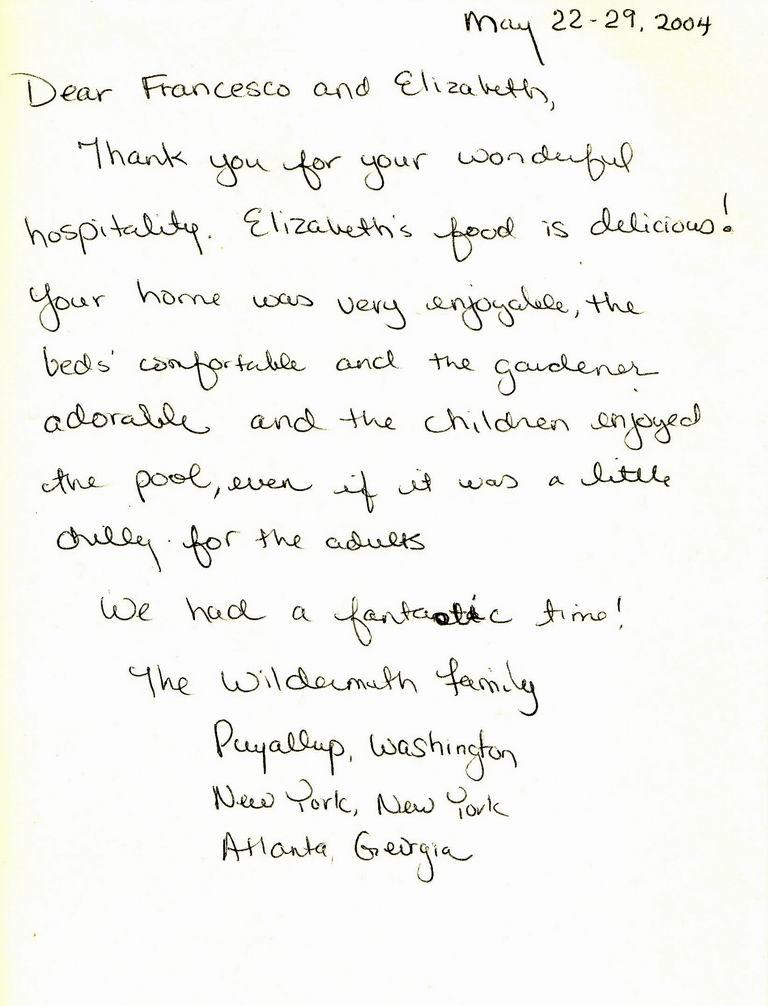 May 22-29, 2004
Dear Francesco and Elizabeth,
Thank you for your wonderful
hospitality. Elizabeth's food is delicious!
Your home was very enjoyable, the
beds' comfortable and the gardener
adorable and the children enjoyed
the pool, even if it was a little
chilly for the adults
We had a fantastic time!
The Wildermuth family
Puyallup, Washington
New York, New York
Atlanta, Georgia